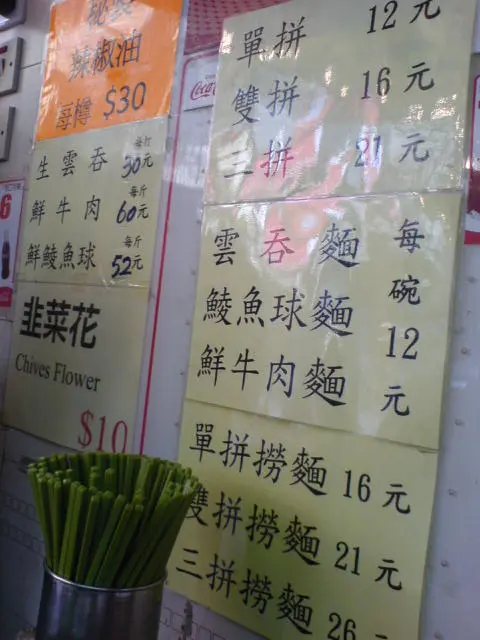 秘製
辣椒油
每樽 $30
生雲吞 每打 30元
鮮牛肉 每斤 60元
鮮鯪魚球 每斤 52元
韭菜花
Chives Flower
$10
Coca
6
單拼 12元
雙拼 16元
三拼 21元
雲吞麵
鯪魚球麵
鮮牛肉麵
每碗12元
單拼撈麵 16元
雙拼撈麵 21元
三拼撈麵 26元